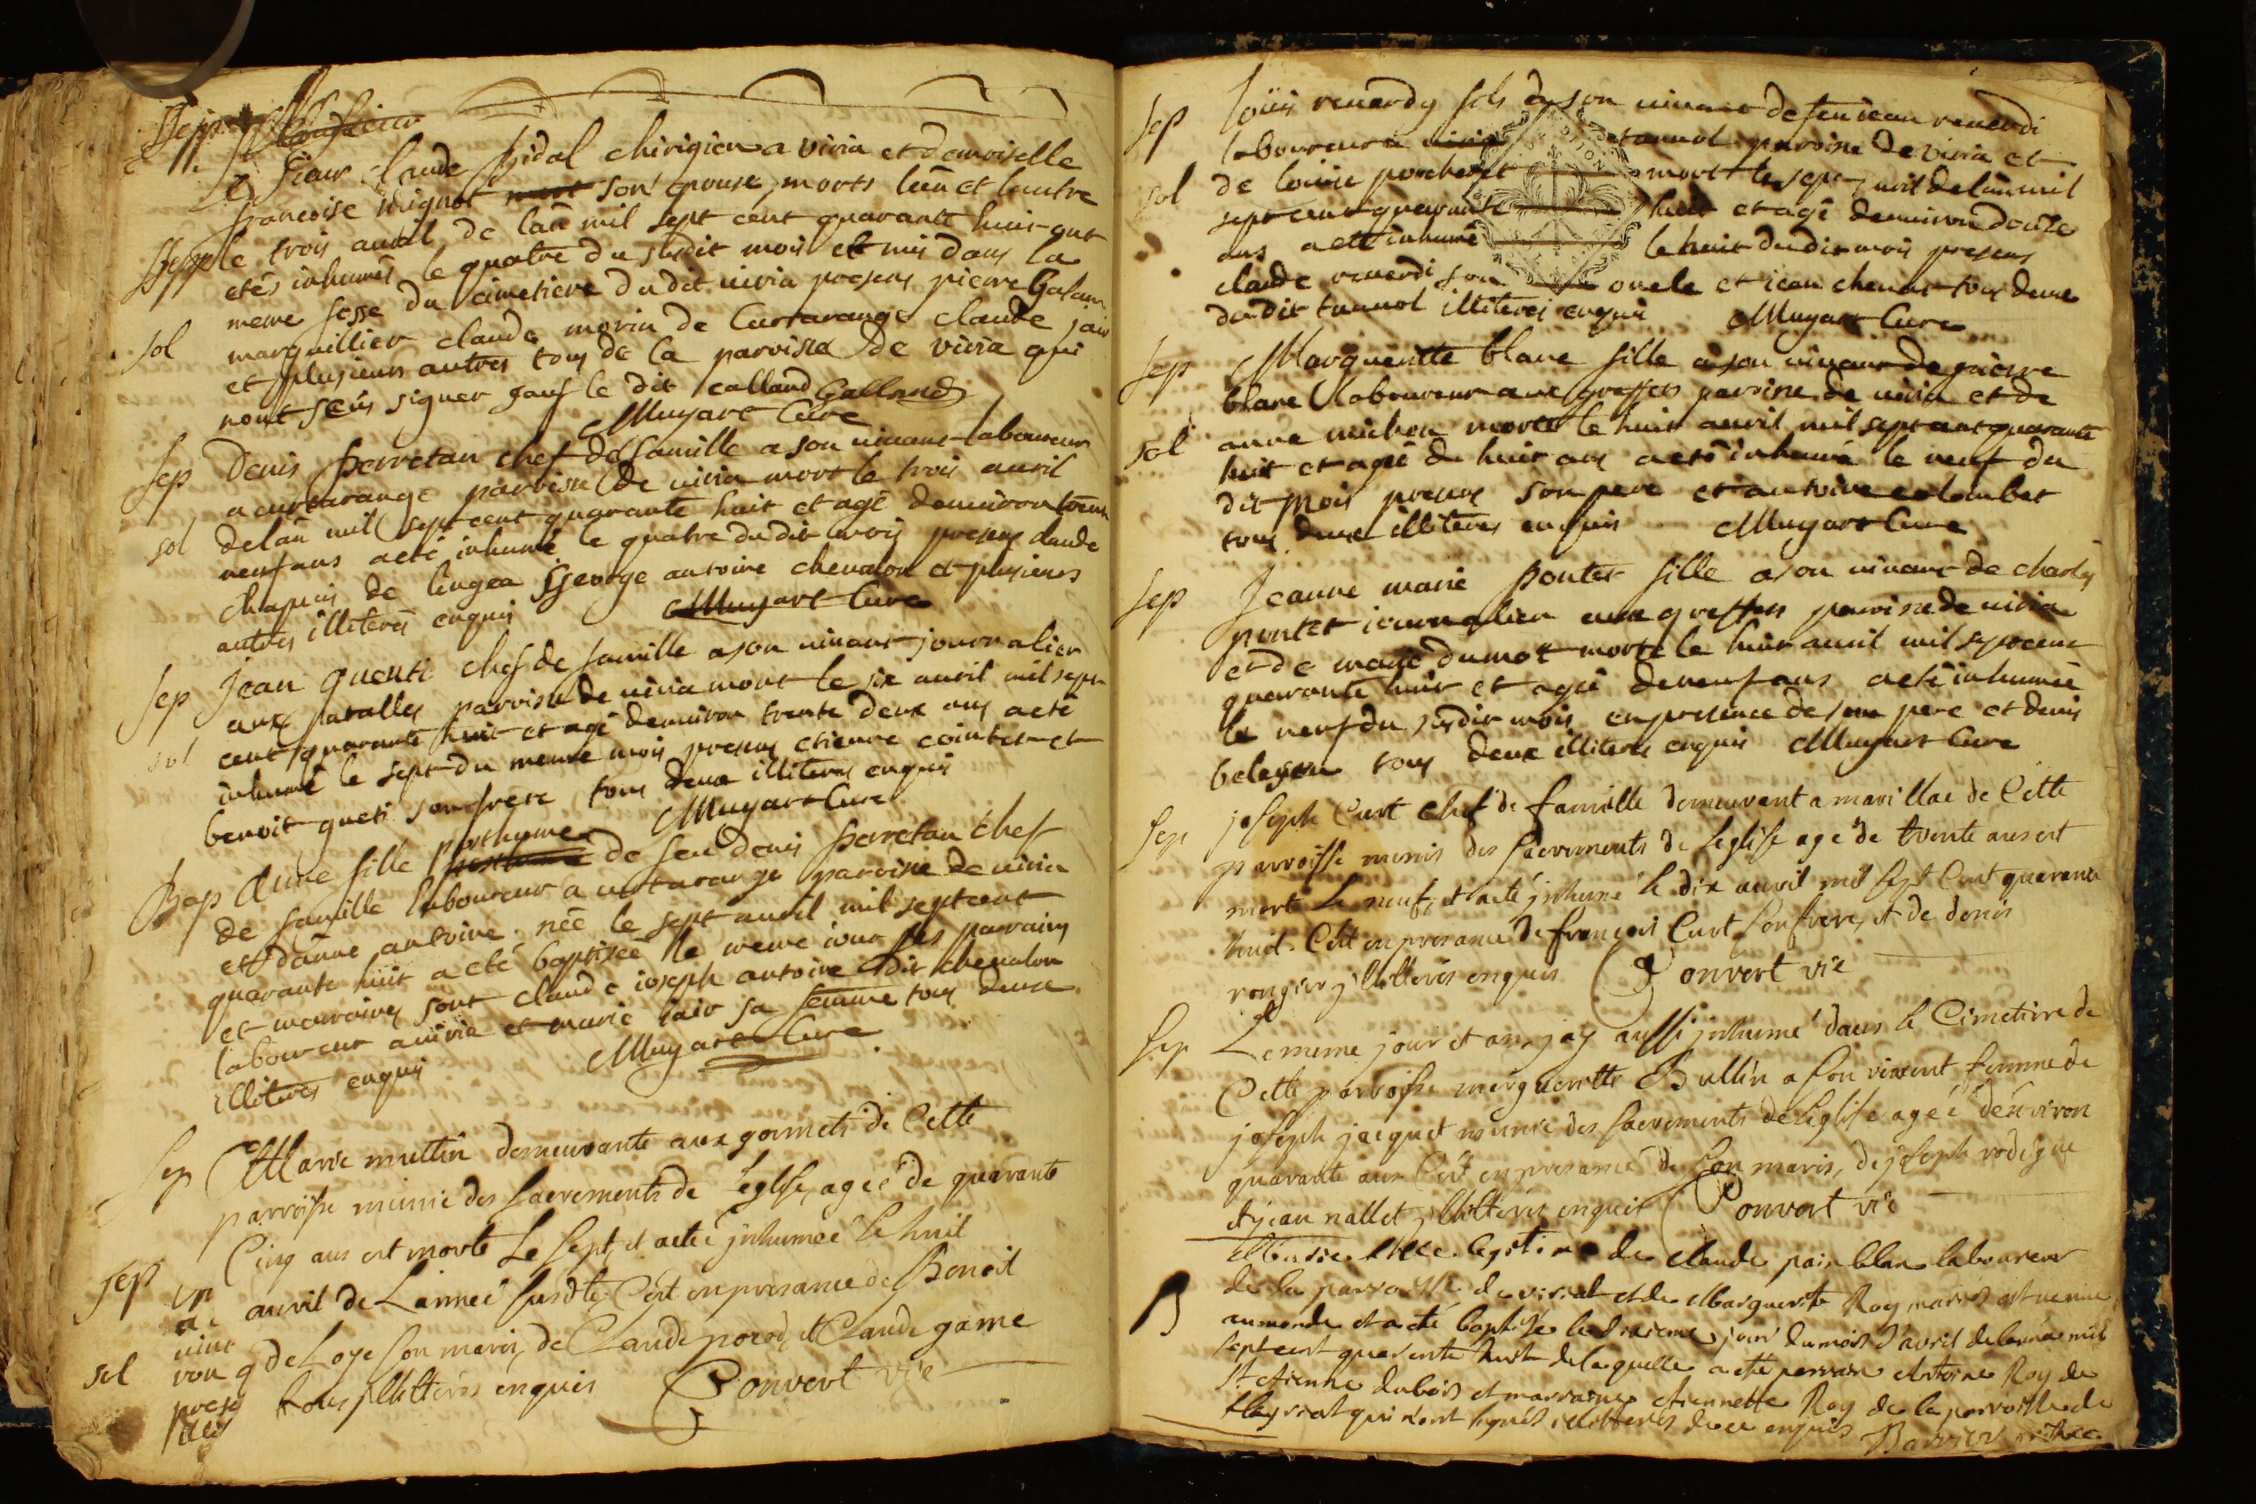 Sepp
Sieur Claude pidal chirigien a viria et demoiselle
francoise mignot son epouse, morts lun et lautre
Sepp le trois avril de lan mil sept cent quarante huit ont
etés inhumés le quatre du susdit mois et mis dans la
meme fosse du cimetiere du dit viria presens pierre
sol marguillier claude morin de Curtarange claude jair
et plusieurs autres tous de la paroisse de viria qui
nont sceus signer sauf le dit calland Galland
Muyart Cure
Sep Denis perretan chef de famille a son vivant laboureur
a curtarange paroisse de viria mort le trois avril
sol delan mil sept cent quarante huit et agé denviron trente
neuf ans a eté inhumé le quatre du dit mois presens claude
chapuis de lingea george antoine chevalon et plusieurs
autres illiteres enquis Muyart Cure
Sep Jean queti chef de famille a son vivant journalier
aux paralles paroisse de viria mort le six avril mil sept
cent quarante huit et agé denviron trente deux ans a eté
sol inhumé le sept du meme mois presens etienne cointet et
benoit queti son frere tous deux illiteres enquis
Muyart Cure
posthume
Bap Anne fille de feu denis perretan chef
de famille laboureur a curtarange paroisse de viria
et danne antoine. née le sept avril mil sept cent
quarante huit a eté baptisée le meme iour ses parrains
et marraines sont claude ioseph antoine dit chevalon
laboureur a viria et marie iair sa femme tous deux
illiteres enquis Muyart Cure
Sep Marie muttin demeurante aux gometi de Cette
parroisse munie des sacrements de l'eglise, ageé de quarante
Cinq ans est morte Le sept, et a eté jnhumeé le huit
sep avril de L'anneé susdte, C'est en presance de Benoit
de Loye son maris, de Claude poncod, et Claude game
sol tous jllitterés enquis Convert vic
sep loüis reverdy fils a son vivant de feu iean reverdi
laboureur a tannol paroisse de viria et
sol de loüise porcheret mort le sept avril de lan mil
sept cent quarante huit et agé denviron douze
ans a eté inhumé le huit du dit mois presens
claude reverdi son oncle et iean chenat tous deux
du dit tannol illiteres enquis Muyart Cure
sep Marguerite blanc fille a son vivant de pierre
blanc laboureur aux greffets paroisse de viria et de
sol anne michon morte le huit avril mil sept cent quarante
huit et agée de huit ans a eté inhumée le neuf du
dit mois presens son pere et antoine colombet
tous deux illiteres enquis Muyart Cure
sep Jeanne marie pontet fille a son vivant de charles
pontet iournalier aux greffets paroisse de viria
et de marie dumot morte le huit avril mil sept cent
quarante huit et agée de neuf ans a eté inhumée
le neuf du susdit mois en presence de son pere et denis
beleysou tous deux illiteres enquis Muyart Cure
Sep joseph Curt chef de famille demeurant a marillac de Cette
parroisse munis des sacrements de l'eglise agé de trente ans est
mort Le neuf, et a eté jnhumé le dix avril mil sept Cent quarante
huit. C'est en presance de françois Curt son frere, et de denis
rongier jllitterés enquis Convert vic
Sep Le meme jour et an, jay aussi jnhumé dans le Cimetiere de
Cette parroisse marguerite Bullin a son vivant femme de
joseph jacquet munie des sacrements de l'eglise ageé d'environ
quarante ans C'est en presance de son maris, de joseph rodigue
et jean nallet jllitterés enquis Convert vic
fille legitime de claude pain blanc laboureur
de la parroisse de viriat et de Marguerite Roy mariés est venue
B au monde et a eté baptisée le dixieme jour du mois d'avril de lanné mil
sept cent quarente huit de laquelle a eté perrain Antoine Roy de
st etienne dubois et marraine etiennette Roy de la parroisse de
qui n'ont signés illitterés de ce enquis